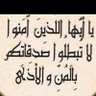 يا أيها اللذين آمنوا
لا تبطلوا صدقاتكم
بِالْمُنِّ و الأذى